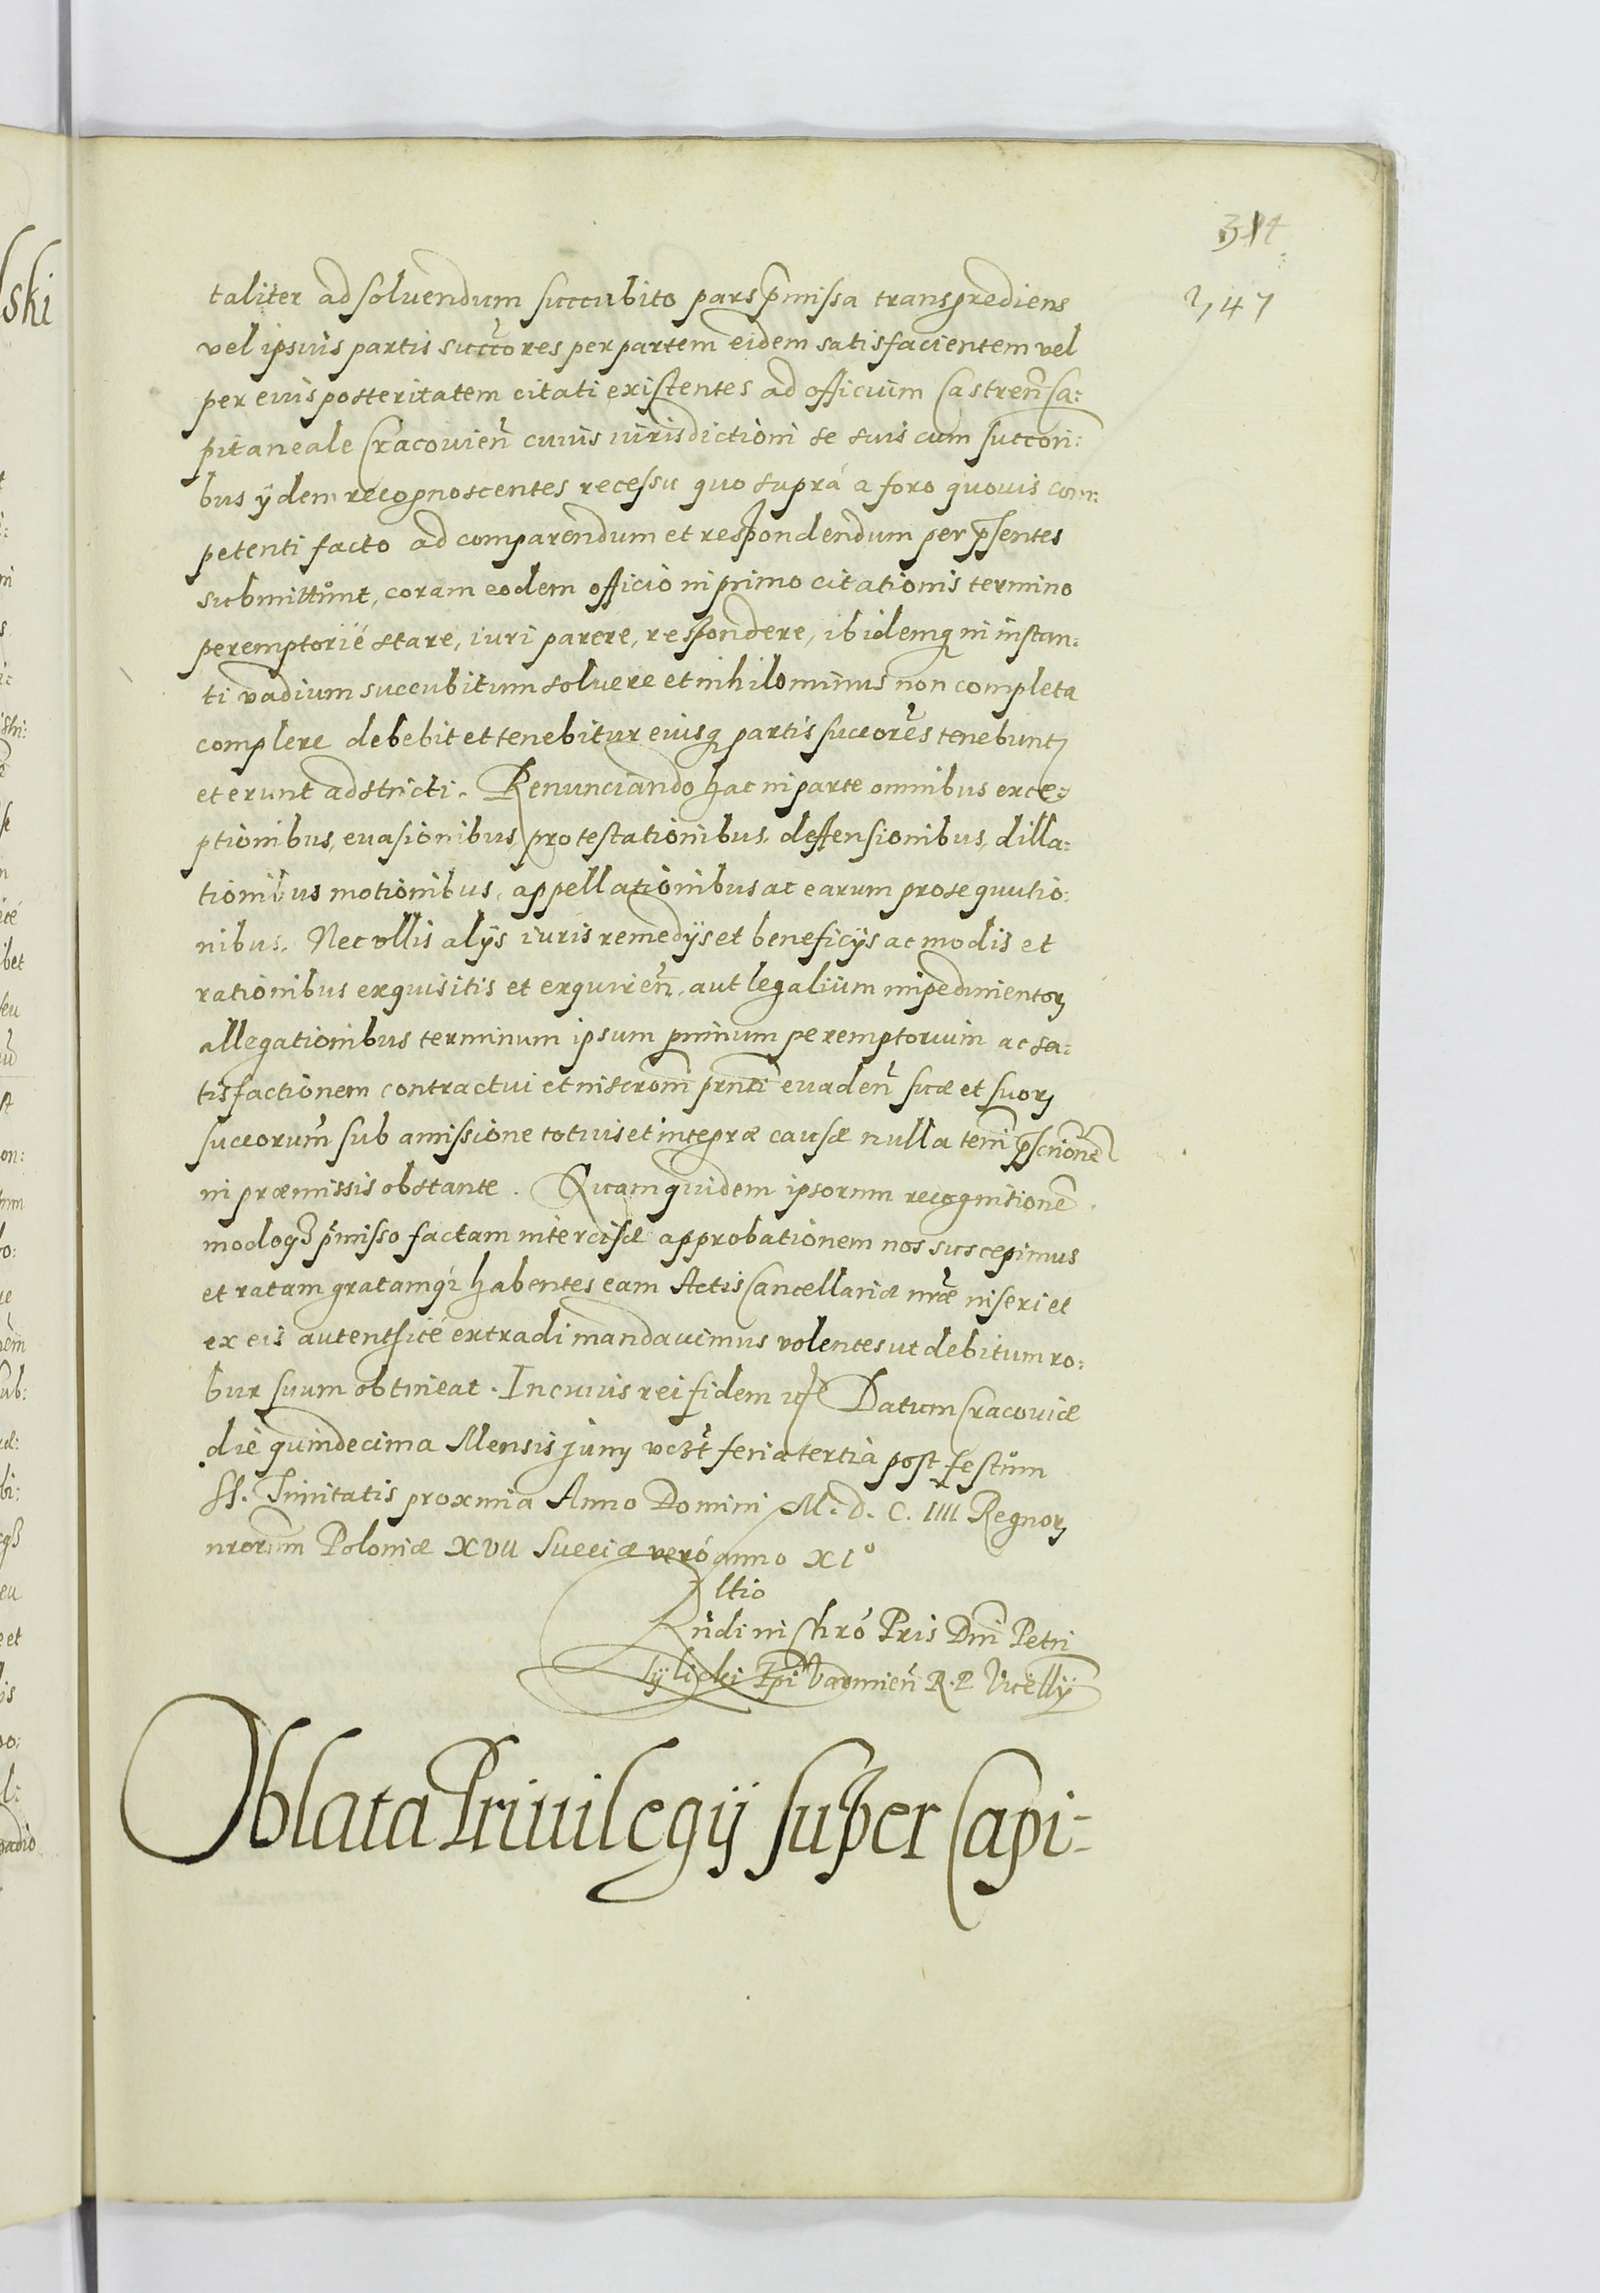 347
taliter ad soluendum succubito pars p̃missa transgrediens
vel ipsius partis succores̃ per partem eidem satisfacientem vel
per eius posteritatem citati existentes ad officium Castren̄ Ca:
pitaneale Cracouien̄ cuius iurisdictioni se suis cum succori:
bus ijdem recognoscentes recessu quo suprà a foro quouis com:
petenti facto ad comparendum et respondendum per p̃sentes
submittunt, coram eodem officio in primo citationis termino
peremptoriè stare, iuri parere, respondere, ibidemq in instan:
ti vadium succubitum soluere et nihilominus non completa
complere debebit et tenebitur eiusq partis succores̃ tenebunt᷒
et erunt adstricti. Renunciando hac in parte omnibus exce:
ptionibus, euasionibus, protestationibus, deffensionibus, dilla:
tionibus motionibus, appellationibus ac earum prosequutio:
nibus. Nec vllis alijs iuris remedijs et beneficijs ac modis et
rationibus exquisitis et exquiren̄, aut legalium impedimentoꝝ
allegationibus terminum ipsum primum peremptorium ac sa:
tisfactionem contractui et inscrom̃ prñti euaden̄ suæ et suoꝝ
succorum̃ sub amissione totius et integræ causæ nulla tem̃ p̃scrionẽ
in præmissis obstante. Quam quidem ipsorum recognitionẽ
modoqꝫ p̃misso factam intercisæ approbationem nos suscepimus
et ratam gratamqꝫ habentes eam Actis Cancellariæ nr̃æ inseri et
ex eis autenthicè extradi mandauimus volentes ut debitum ro:
bur suum obtineat. In cuius rei fidem Datum Cracouiæ
die quindecima Mensis Junij vczt feria tertia post festum
SS. Trinitatis proxima Anno Domini M. D. C. IIII Regnoꝝ
nrorum̃ Poloniæ XVII Sueciæ verò anno XI°
Rltio
Rñdi in Chrõ Pris Dm̃ Petri
Tylicki Epi Varmien̄ R. P. Vicellij
Oblata Priuilegij super Capi=